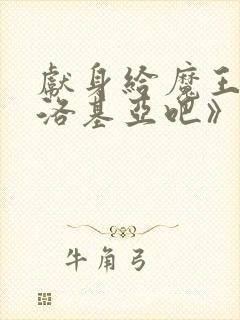 獻身給魔王
洛基亞吧》
牛角弓